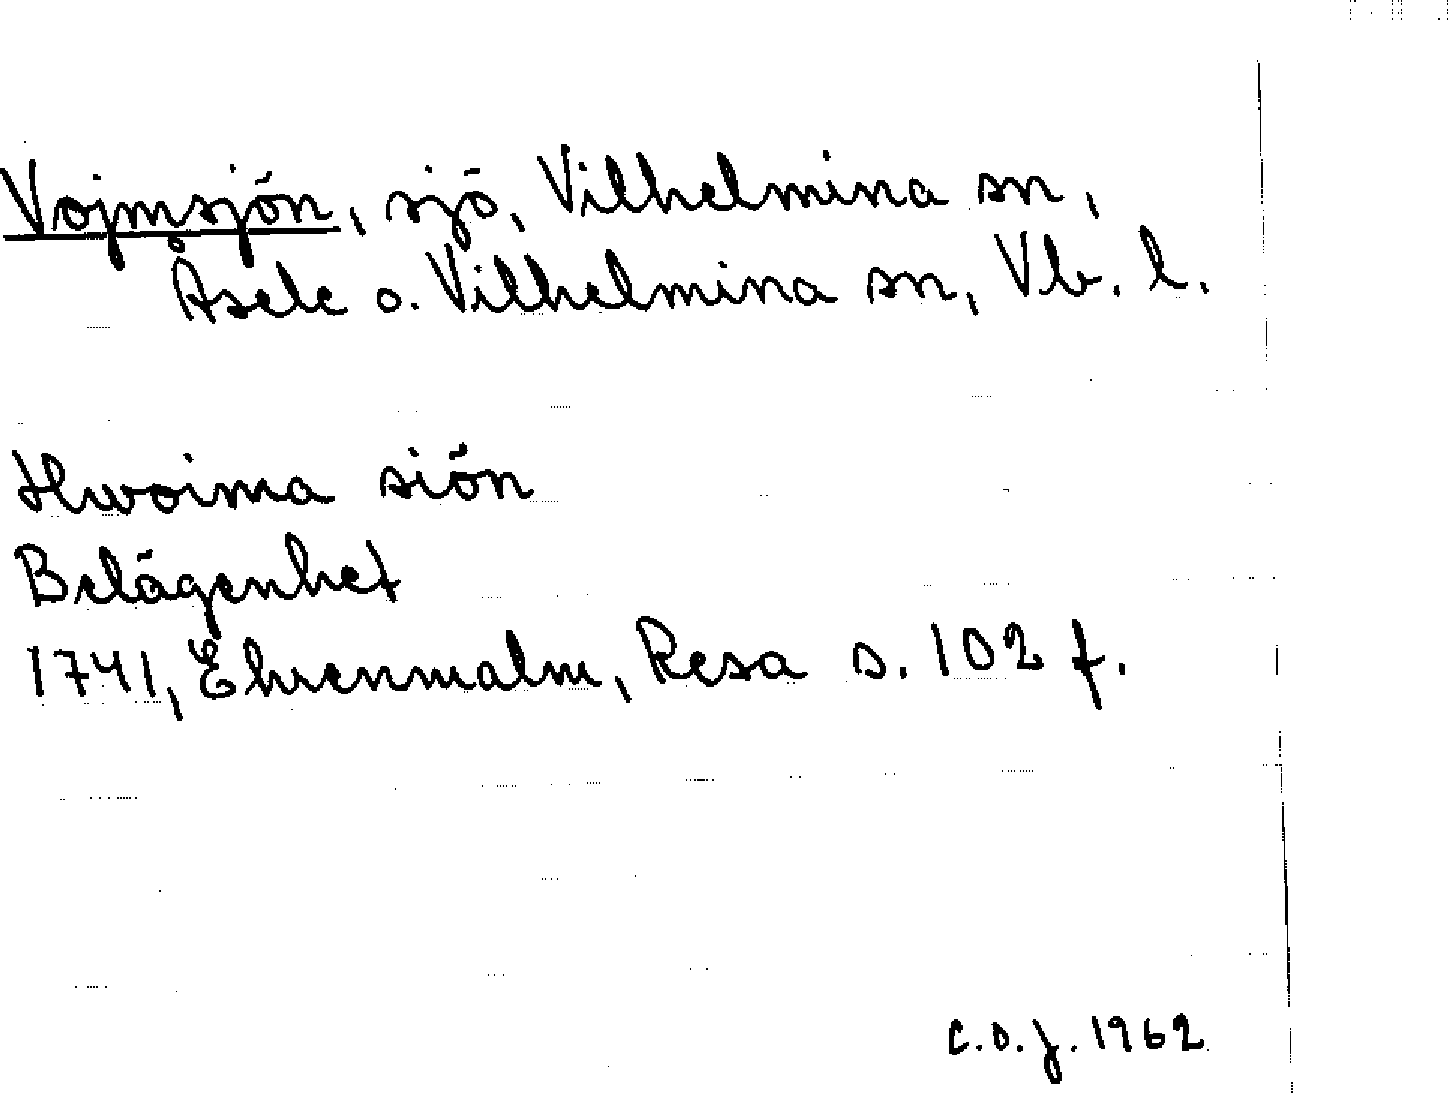 Vojmsjön, sjö, Vilhelmina sn,
Åsele o. Vilhelmina sn, Vb. l.
Hwoima siön
Belägenhet
1741, Ehrenmalm, Resa s. 102 f.
C.O.J. 1962